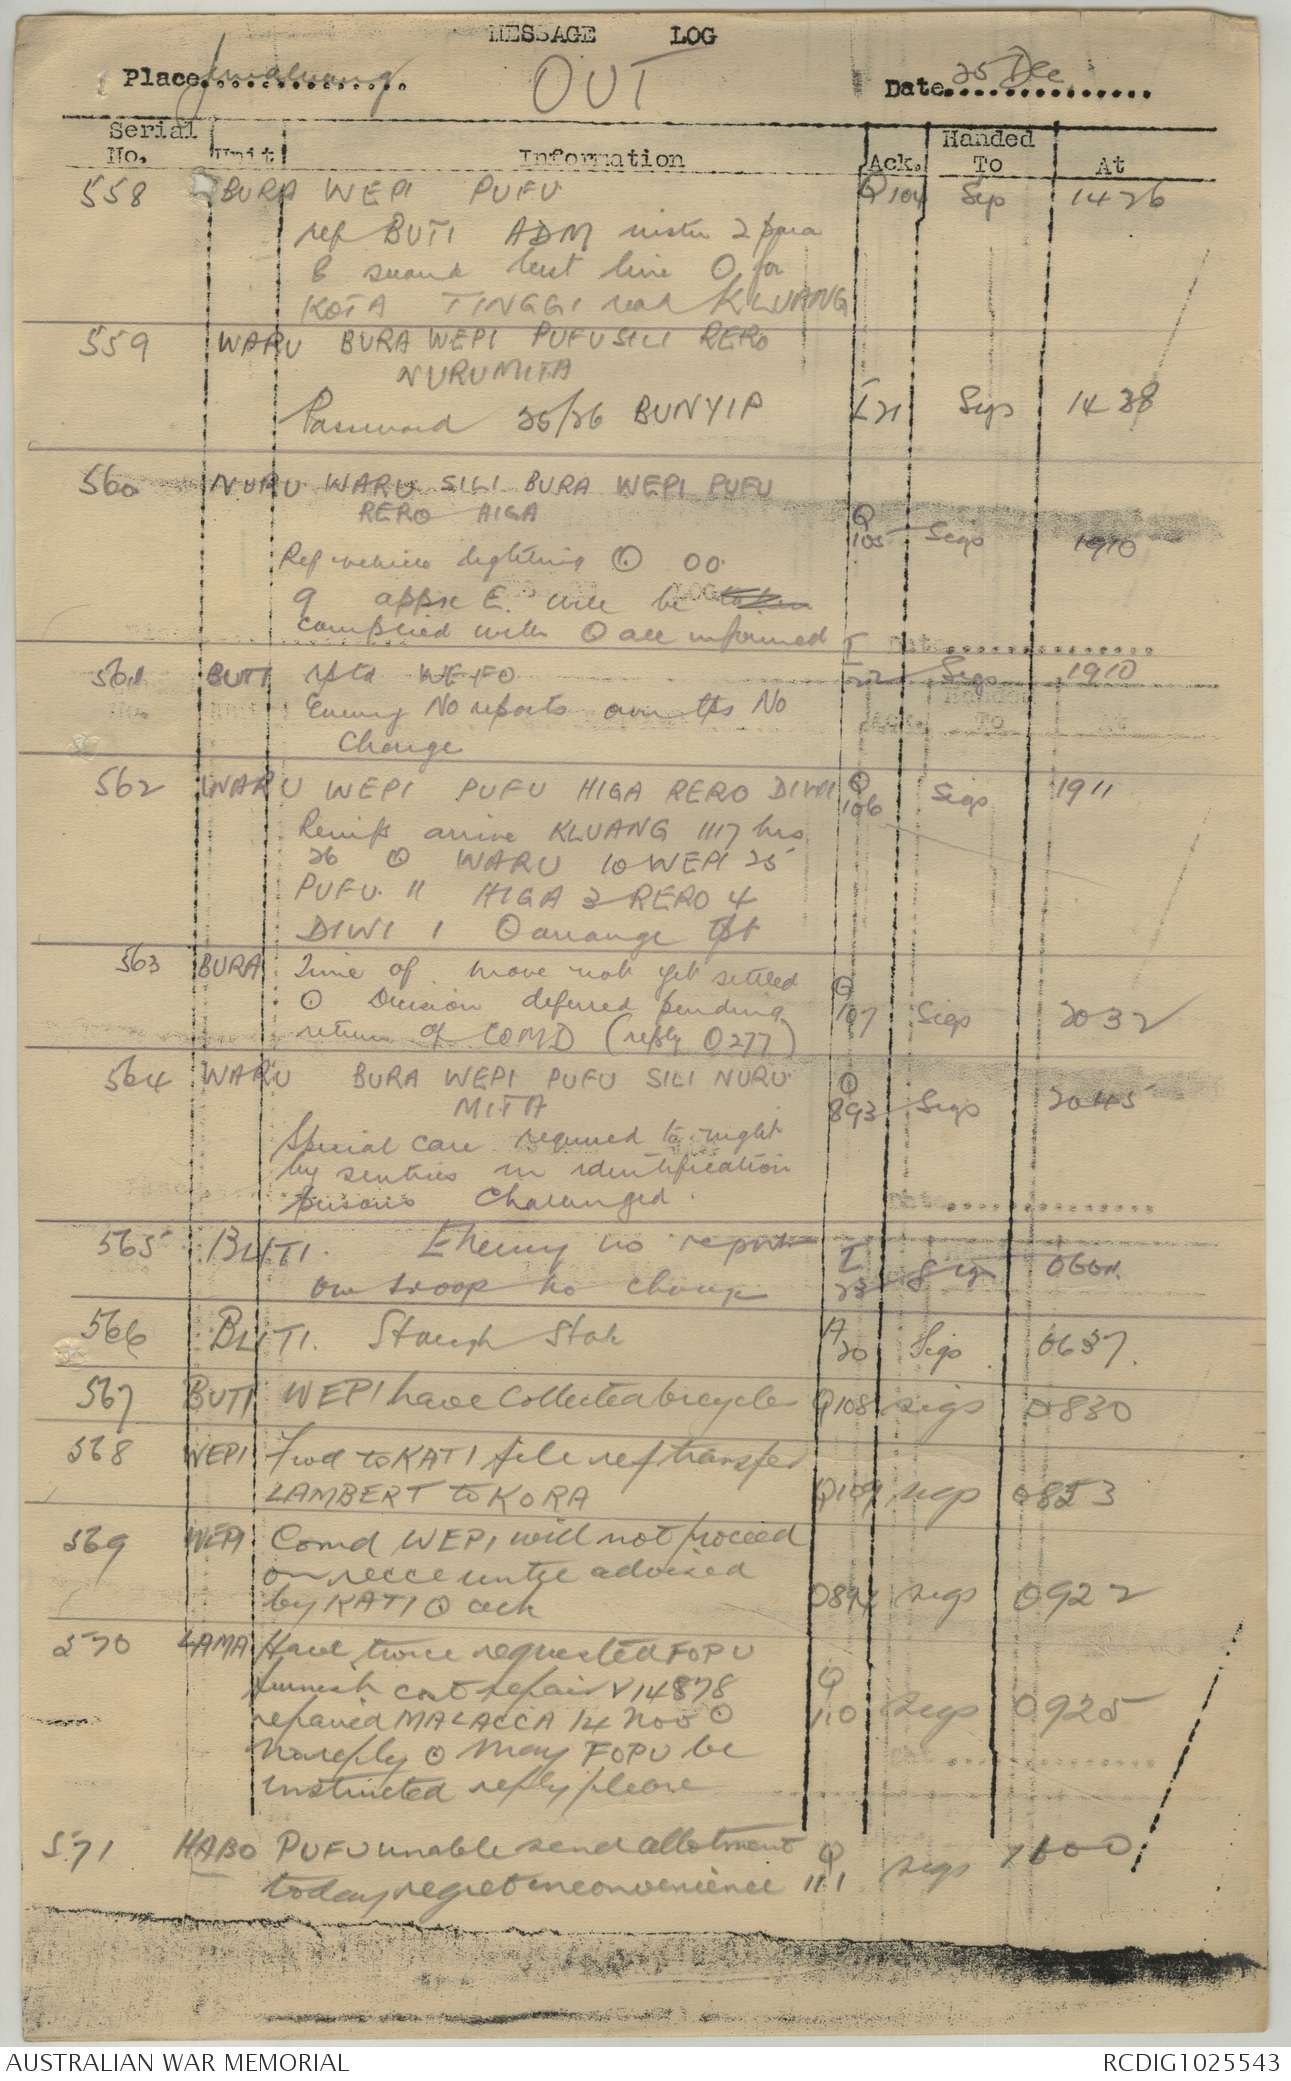 MESSAGE LOG
OUT
Place Jemaluang
Date 25 Dec
Serial No. Unit Information Ack. Handed To At
558 BURA WEPI PUFU Q104 Sigs 1426
ref BUTI ADM 2 para
line O for
KOTA TINGGI read KLUANG
559 WARU BURA WEPI PUFU SILI RERO
NURU MITA
Password 25/26 BUNYIP I 21 Sigs 1438
560 NURU WARU SILI BURA WEPI PUFU
RERO HIGA Q 105 Sigs 1910
Ref vehicle lighting O OO
9 appx E. will be
complied with O all informed
561 BUTI rptd WEFO I 22 Sigs 1910
Enemy No reports own tps No
Change
562 WARU WEPI PUFU HIGA RERO DIWI Q 106 Sigs 1911
Reinfs arrive KLUANG 1117 hrs
26 O WARU 10 WEPI 25
PUFU 11 HIGA 3 RERO 4
DIWI 1 O arrange tpt
563 BURA Time of move not yet settled
O Decision deferred pending Q 107 Sigs 2032
return of COMD (reply O277)
564 WARU BURA WEPI PUFU SILI NURU
MITA O 893 Sigs 2045
Special care required to-night
by sentries in identification
persons challenged.
565 BUTI. Enemy no report I 23 Sigs
own troop no change
566 BUTI. Strength State A 20 Sigs 0637.
567 BUTI WEPI have collected bicycles Q108 sigs 0830
568 WEPI Fwd to KATI file ref transfer
LAMBERT to KORA Q109 sigs 0853
569 WEPI Comd WEPI will not proceed
on recce until advised
by KATI O ack O894 sigs 0922
570 LAMA Have twice requested FOPU
furnish cost repair V14878 Q 110 sigs 0925
repaired MALACCA 14 Nov O
No reply O May FOPU be
instructed reply please
571 HABO PUFU unable send allotment
today regret inconvenience Q 111 sigs 1600
AUSTRALIAN WAR MEMORIAL
RCDIG1025543